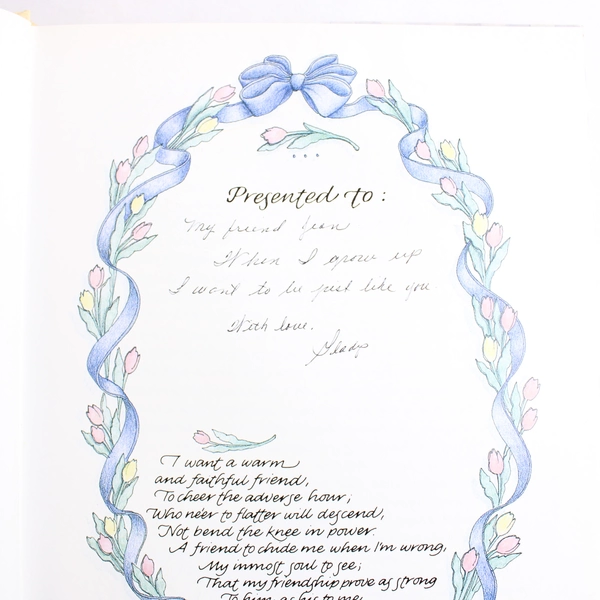 Presented to:
My friend Jean
When I grow up
I want to be just like you.
With love.
Gladys
I want a warm
and faithful friend,
To cheer the adverse hour;
Who ne'er to flatter will descend,
Not bend the knee in power.
A friend to chide me when I'm wrong,
My inmost soul to see;
That my friendship prove as strong
To him as his to me.